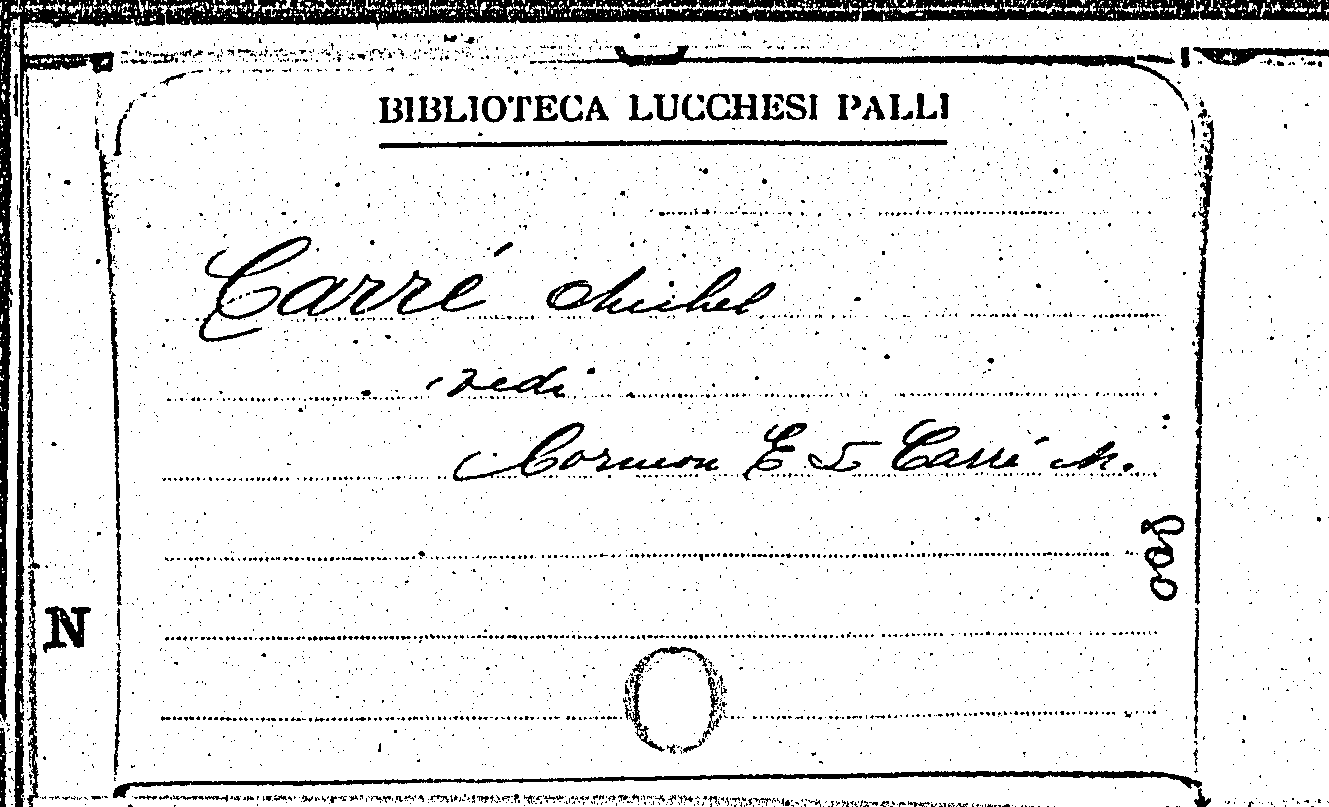 BIBLIOTECA LUCCHESI PALLI
Carré Michel
vedi
Cormon E & Carré M.
800
N